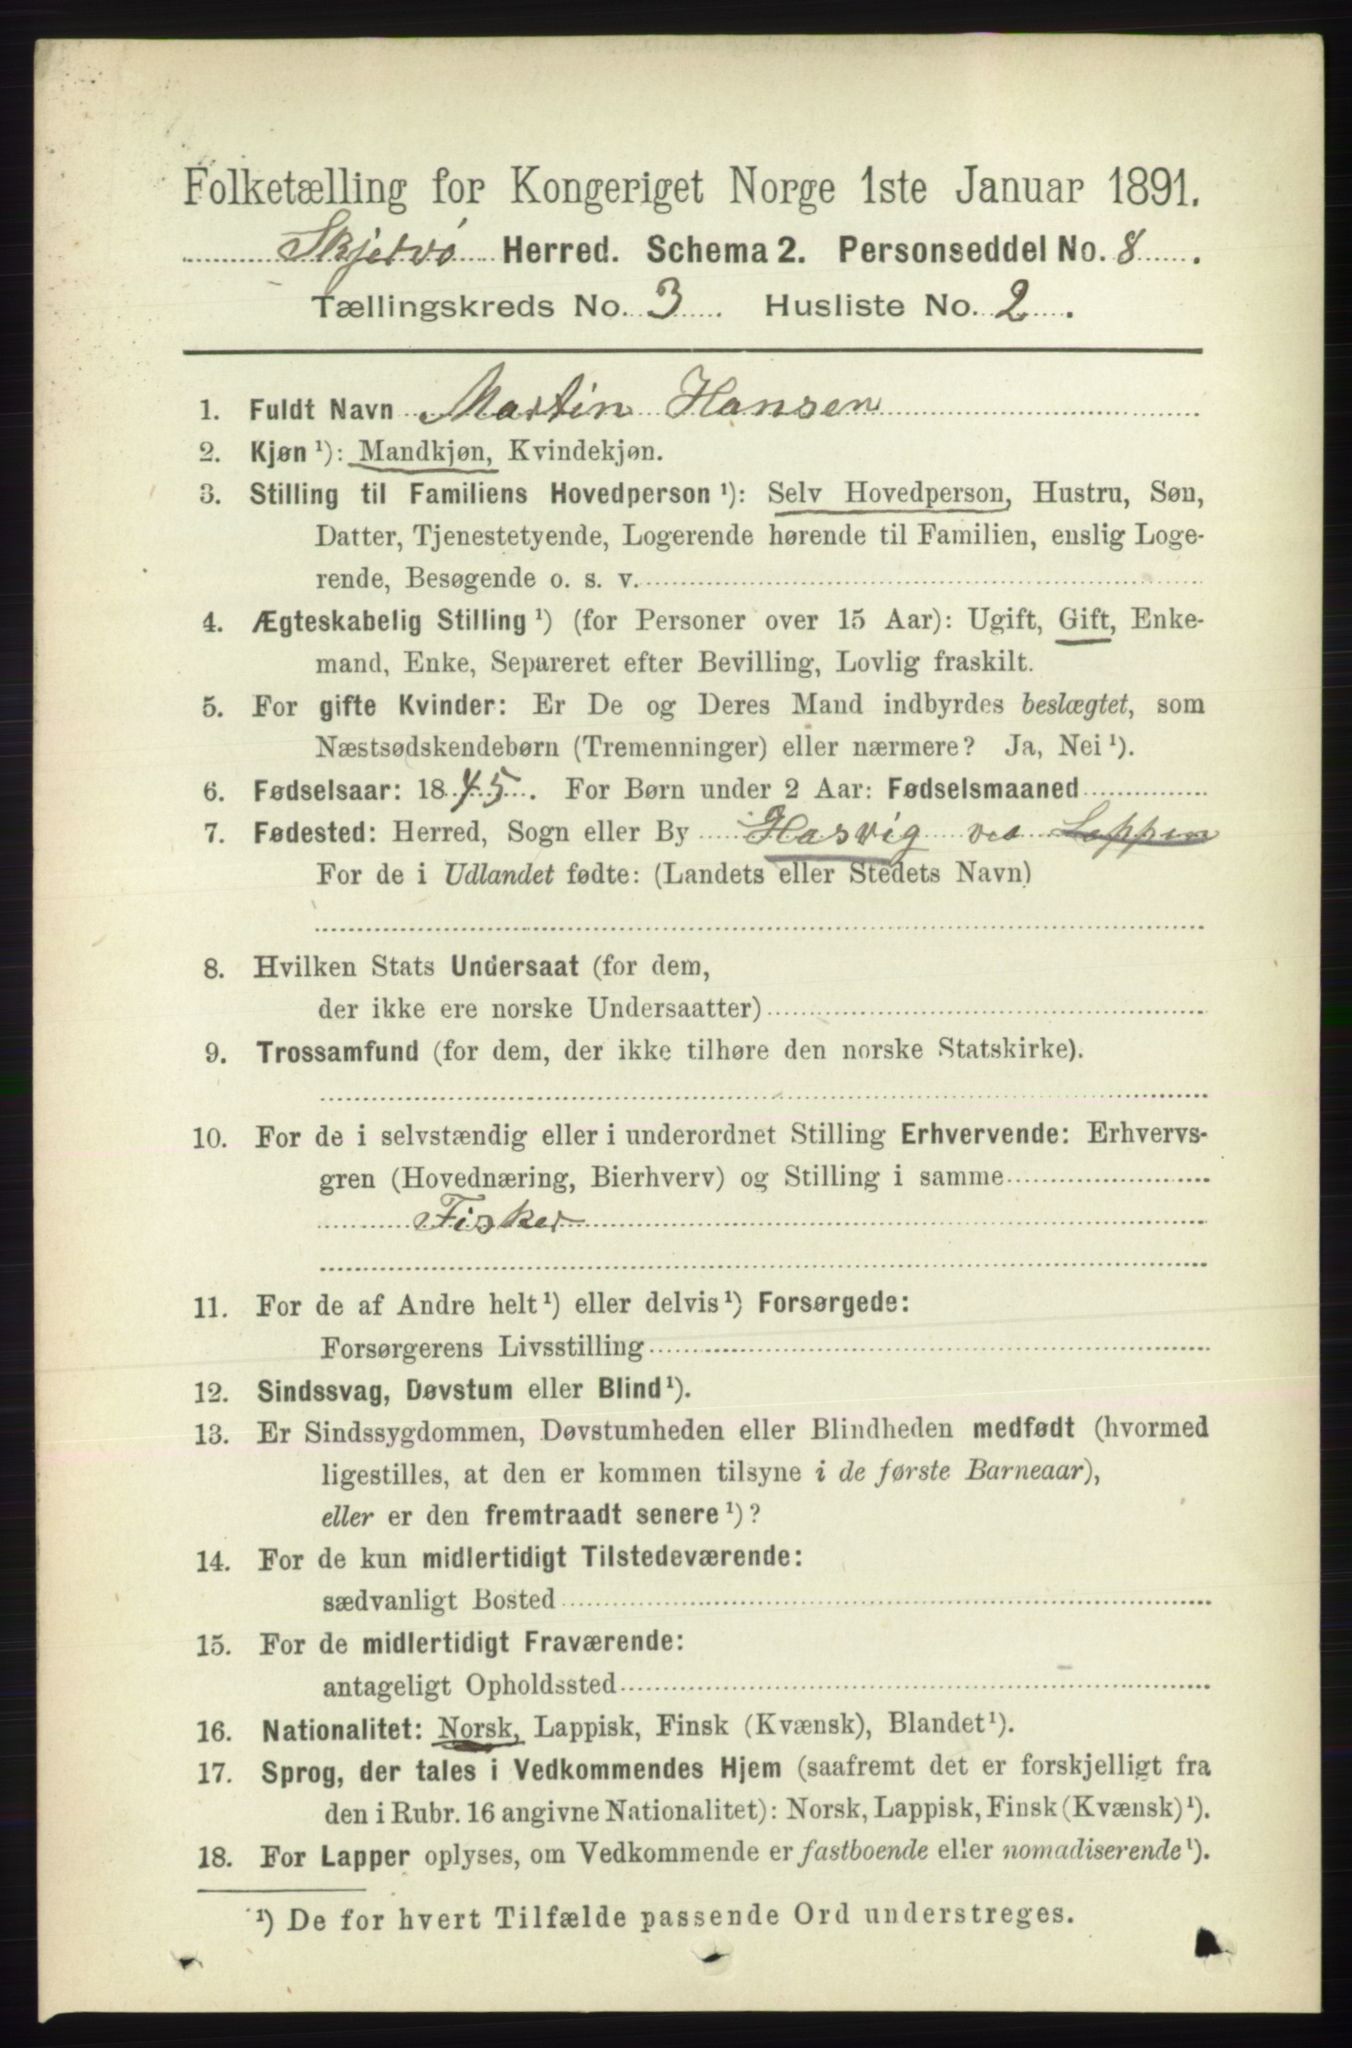 Folketælling for Kongeriget Norge 1ste Januar 1891.
Skjervø Herred. Schema 2. Personseddel No. 8.
Tællingskreds No. 3. Husliste No. 2.
1. Fuldt Navn Martin Hansen
2. Kjøn ¹): Mandkjøn, Kvindekjøn.
3. Stilling til Familiens Hovedperson ¹): Selv Hovedperson, Hustru, Søn,
Datter, Tjenestetyende, Logerende hørende til Familien, enslig Loge-
rende, Besøgende o. s. v.
4. Ægteskabelig Stilling ¹) (for Personer over 15 Aar): Ugift, Gift, Enke-
mand, Enke, Separeret efter Bevilling, Lovlig fraskilt.
5. For gifte Kvinder: Er De og Deres Mand indbyrdes beslægtet, som
Næstsødskendebørn (Tremenninger) eller nærmere? Ja, Nei ¹).
6. Fødselsaar: 1845. For Børn under 2 Aar: Fødselsmaaned
7. Fødested: Herred, Sogn eller By Hasvig ved Loppen
For de i Udlandet fødte: (Landets eller Stedets Navn)
8. Hvilken Stats Undersaat (for dem,
der ikke ere norske Undersaatter)
9. Trossamfund (for dem, der ikke tilhøre den norske Statskirke).
10. For de i selvstændig eller i underordnet Stilling Erhvervende: Erhvervs-
gren (Hovednæring, Bierhverv) og Stilling i samme
Fisker
11. For de af Andre helt ¹) eller delvis ¹) Forsørgede:
Forsørgerens Livsstilling
12. Sindssvag, Døvstum eller Blind ¹).
13. Er Sindssygdommen, Døvstumheden eller Blindheden medfødt (hvormed
ligestilles, at den er kommen tilsyne i de første Barneaar),
eller er den fremtraadt senere ¹)?
14. For de kun midlertidigt Tilstedeværende:
sædvanligt Bosted
15. For de midlertidigt Fraværende:
antageligt Opholdssted
16. Nationalitet: Norsk, Lappisk, Finsk (Kvænsk), Blandet ¹).
17. Sprog, der tales i Vedkommendes Hjem (saafremt det er forskjelligt fra
den i Rubr. 16 angivne Nationalitet): Norsk, Lappisk, Finsk (Kvænsk) ¹).
18. For Lapper oplyses, om Vedkommende er fastboende eller nomadiserende ¹).
¹) De for hvert Tilfælde passende Ord understreges.